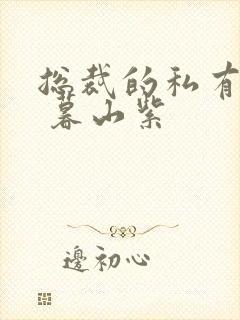 总裁的私有
暮山紫
邊初心